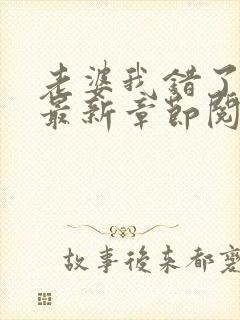 老婆我错了
最新章节阅
故事後来都